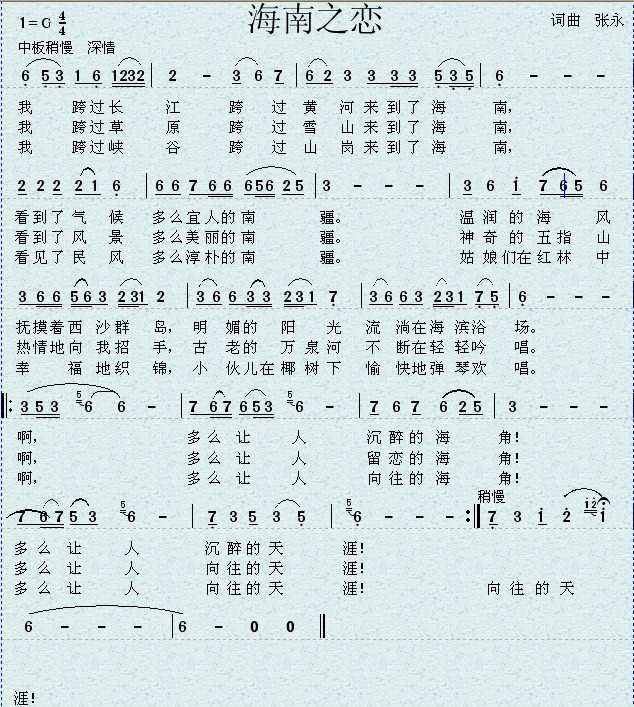 海南之恋
1=G 4/4
词曲 张永
中板稍慢 深情
6 5 3 1 6 1232 | 2 - 3 6 7 | 6 2 3 3 3 3 5 3 5 | 6 - - -
我 跨过长 江 跨 过 黄 河来到了海 南，
我 跨过草 原 跨 过 雪 山来到了海 南，
我 跨过峡 谷 跨 过 山 岗来到了海 南，
2 2 2 2 1 6 | 6 6 7 6 6 656 2 5 | 3 - - - | 3 6 i 7 6 5 6
看到了气 候 多么宜人的南 疆。 温润的海 风
看到了风 景 多么美丽的南 疆。 神奇的五指 山
看见了民 风 多么淳朴的南 疆。 姑娘们在红林 中
3 6 6 5 6 3 2 3 1 2 | 3 6 6 3 3 2 3 1 7 | 3 6 6 3 2 3 1 7 5 | 6 - - -
抚摸着西 沙群 岛， 明 媚的 阳 光 流 淌在海 滨浴 场。
热情地向 我招 手， 古 老的 万泉河 不 断在轻 轻吟 唱。
幸 福地织 锦， 小 伙儿在椰树下 愉 快地弹 琴欢 唱。
3 5 3 5 6 6 - | 7 6 7 6 5 3 5 6 - | 7 6 7 6 2 5 | 3 - - -
啊， 多么让 人 沉醉的海 角！
啊， 多么让 人 留恋的海 角！
啊， 多么让 人 向往的海 角！
稍慢
7 6 7 5 3 5 6 - | 7 3 5 3 5 | 5 6 - - - :| 7 3 i 2 i2 i
多么让 人 沉醉的天 涯！
多么让 人 向往的天 涯！
多么让 人 向往的天 涯！ 向往的天
6 - - - | 6 - 0 0
涯！